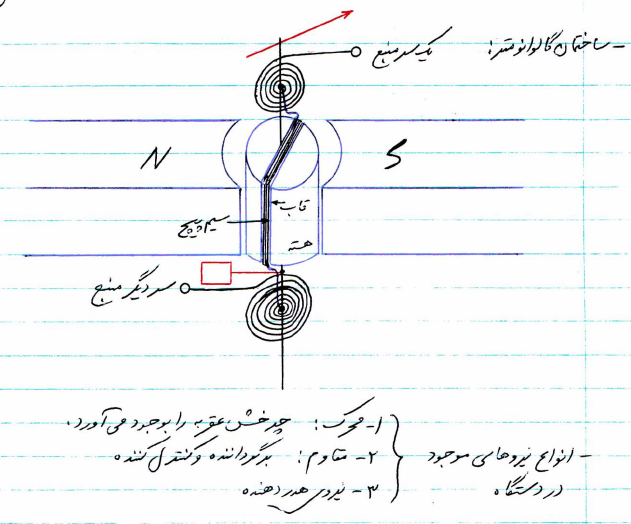 - ساختمان گالوانومتر:
یک سر منبع
N
S
قاب
سیم پیچ
هسته
سر دیگر منبع
- انواع نیروهای موجود
در دستگاه
1- محرک: چرخش عقربه را بوجود می آورد.
2- مقاوم: برگرداننده و کنترل کننده
3- نیروی هدر دهنده